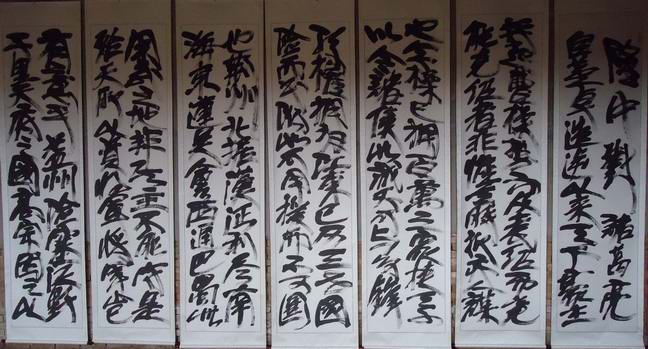 隆中對 諸葛亮
自董卓造逆以來天下豪傑
並起曹操勢不及袁紹而竟
能克紹者非惟天時抑亦人謀
也今操已擁百萬之眾挾天子
以令諸侯此誠不可與爭鋒
孫權據有江東已歷三世國
險而民附此可用為援而不可圖
也荊州北據漢沔利盡南
海東連吳會西通巴蜀此
用武之地非其主不能守是
殆天所以資將軍將軍豈
有意乎益州險塞沃野
千里天府之國高祖因之以